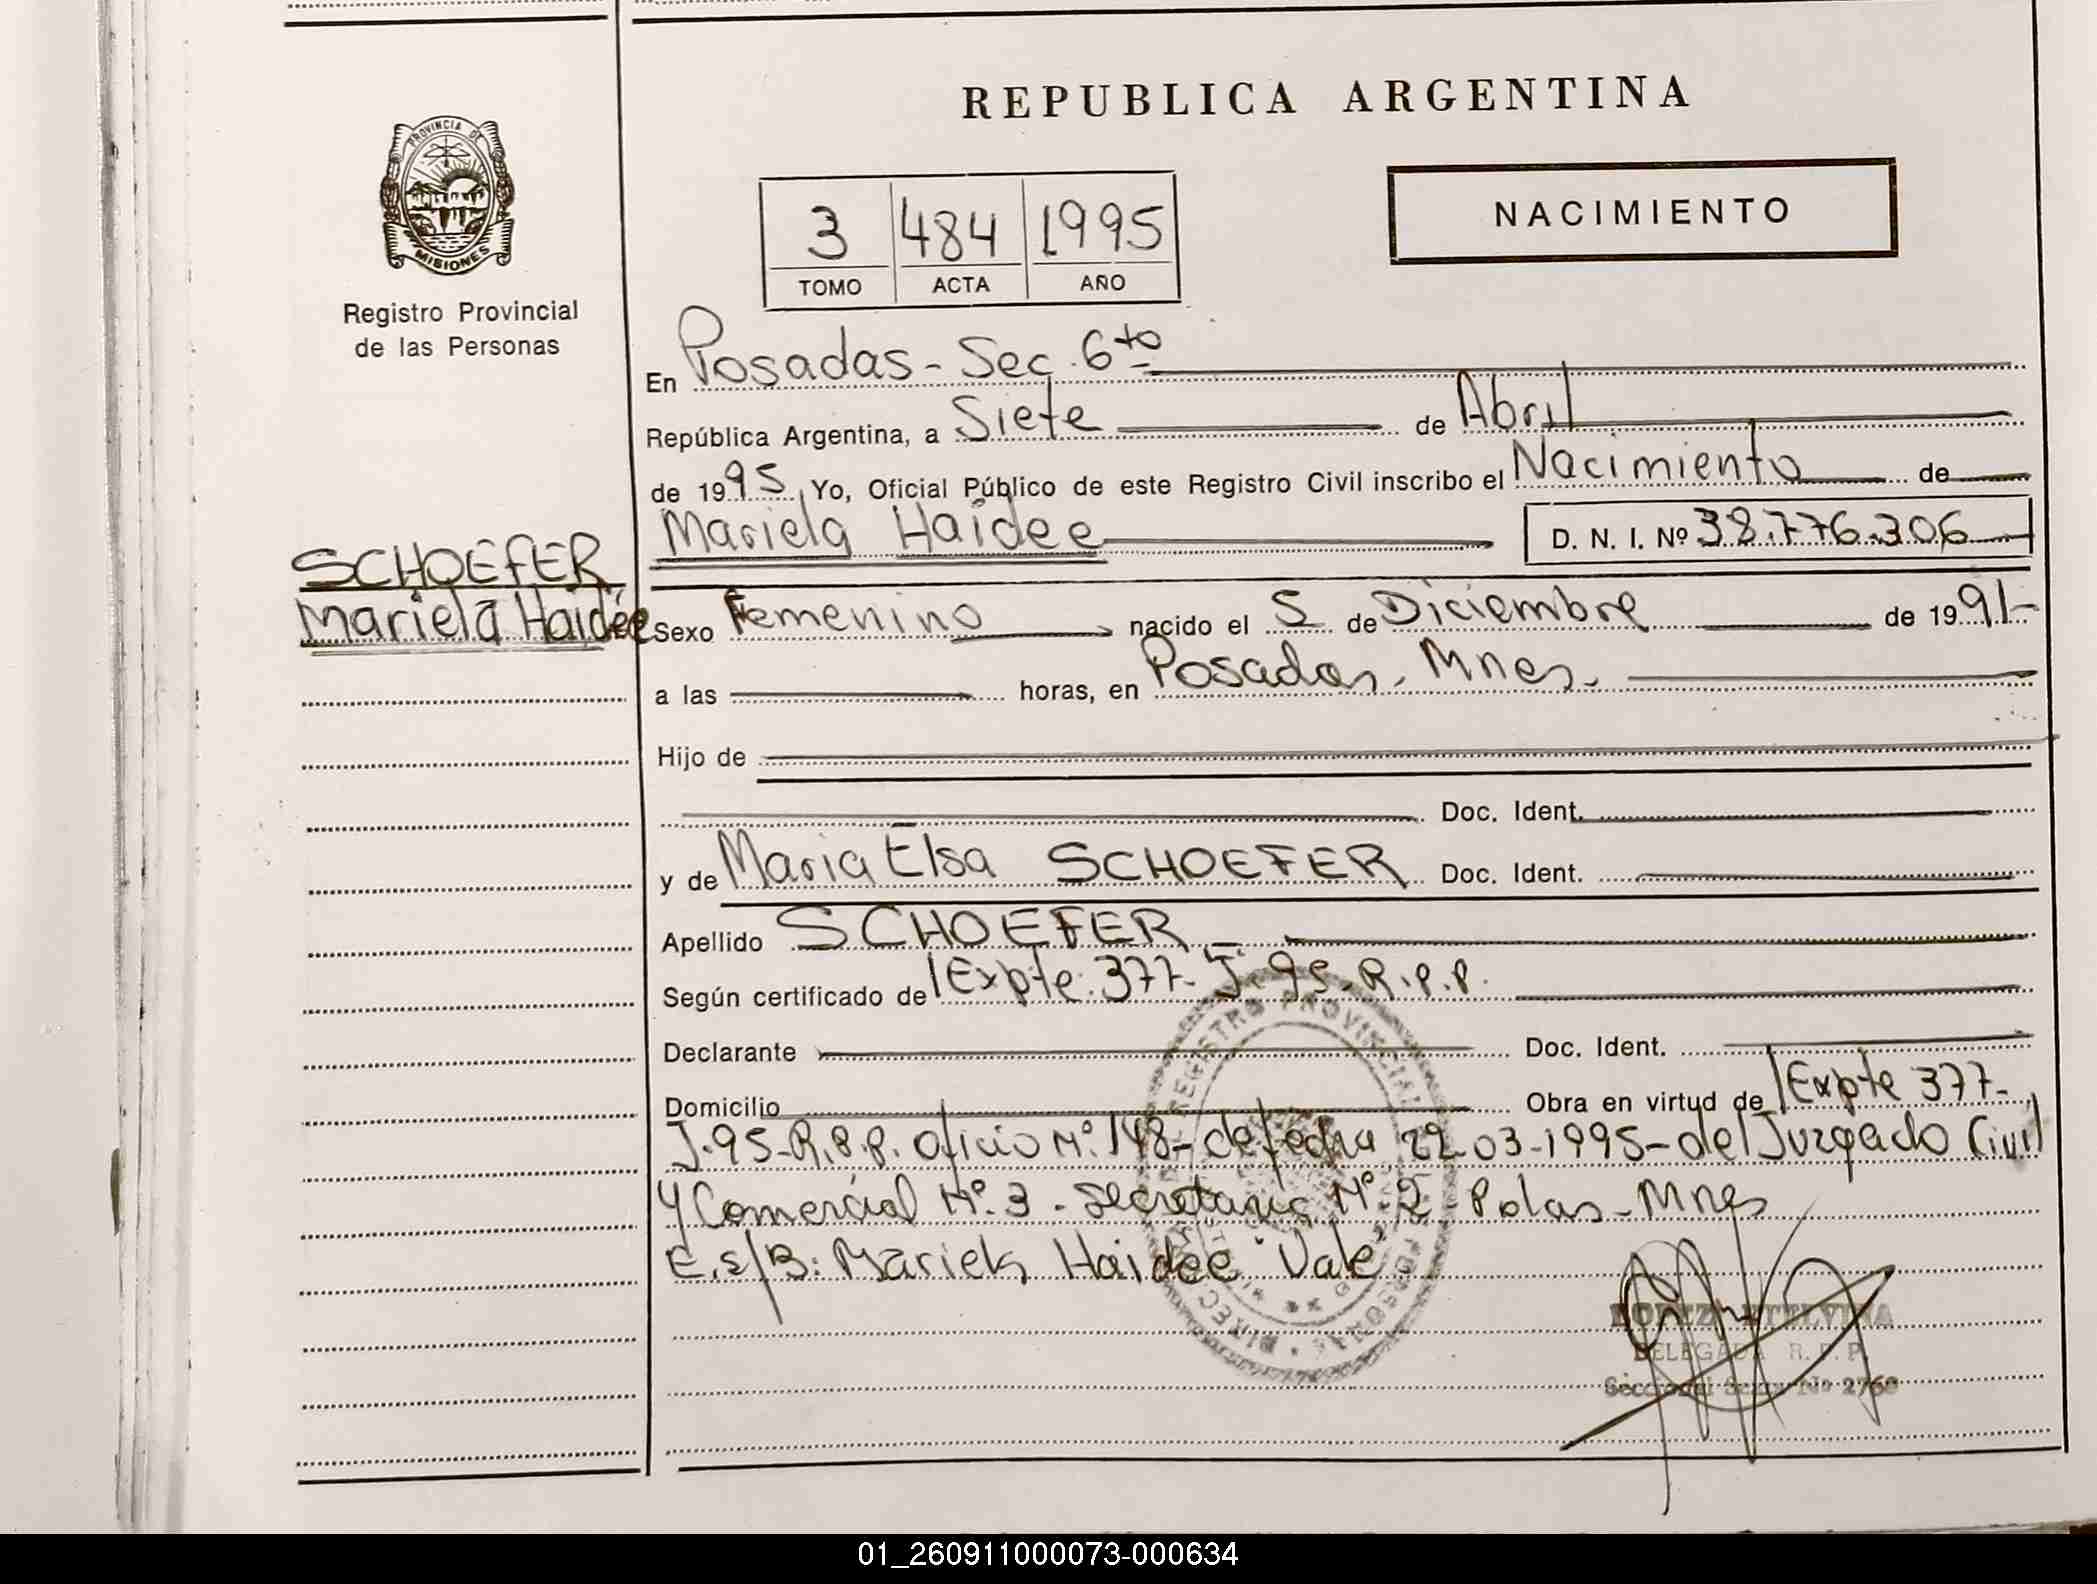 REPUBLICA ARGENTINA
PROVINCIA DE
MISIONES
Registro Provincial
de las Personas
NACIMIENTO
3 484 1995
TOMO ACTA AÑO
En Posadas - Sec. 6to
República Argentina, a Siete de Abril
de 1995. Yo, Oficial Público de este Registro Civil inscribo el Nacimiento de
SCHOEFER
Mariela Haidée
Mariela Haidee D. N. I. Nº 38.776.306
Sexo Femenino nacido el 5 de Diciembre de 1991-
a las horas, en Posadas, Mnes.
Hijo de
Doc. Ident.
y de Maria Elsa SCHOEFER Doc. Ident.
Apellido SCHOEFER
Según certificado de Expte. 377- J. 95. R.P.P.
Declarante Doc. Ident.
Domicilio Obra en virtud de Expte 377-
J.95-R.P.P. Oficio Nº. 148- de fecha 22-03-1995- del Juzgado Civil
y Comercial Nº. 3 - Secretaria Nº. 2 - Pdas - Mnes
E.s/B: Mariela Haidee "Vale"
REGISTRO PROVINCIAL
ETELVINA
DELEGADA R. P. P.
Seccional Sexta Nº 2760
01_260911000073-000634